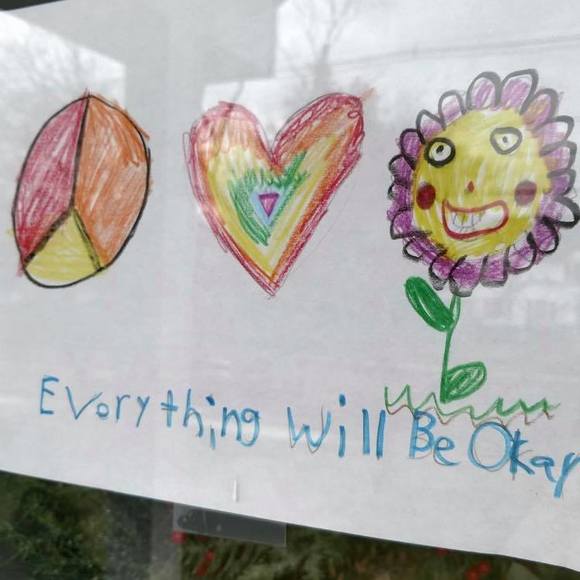 Everything Will Be Okay